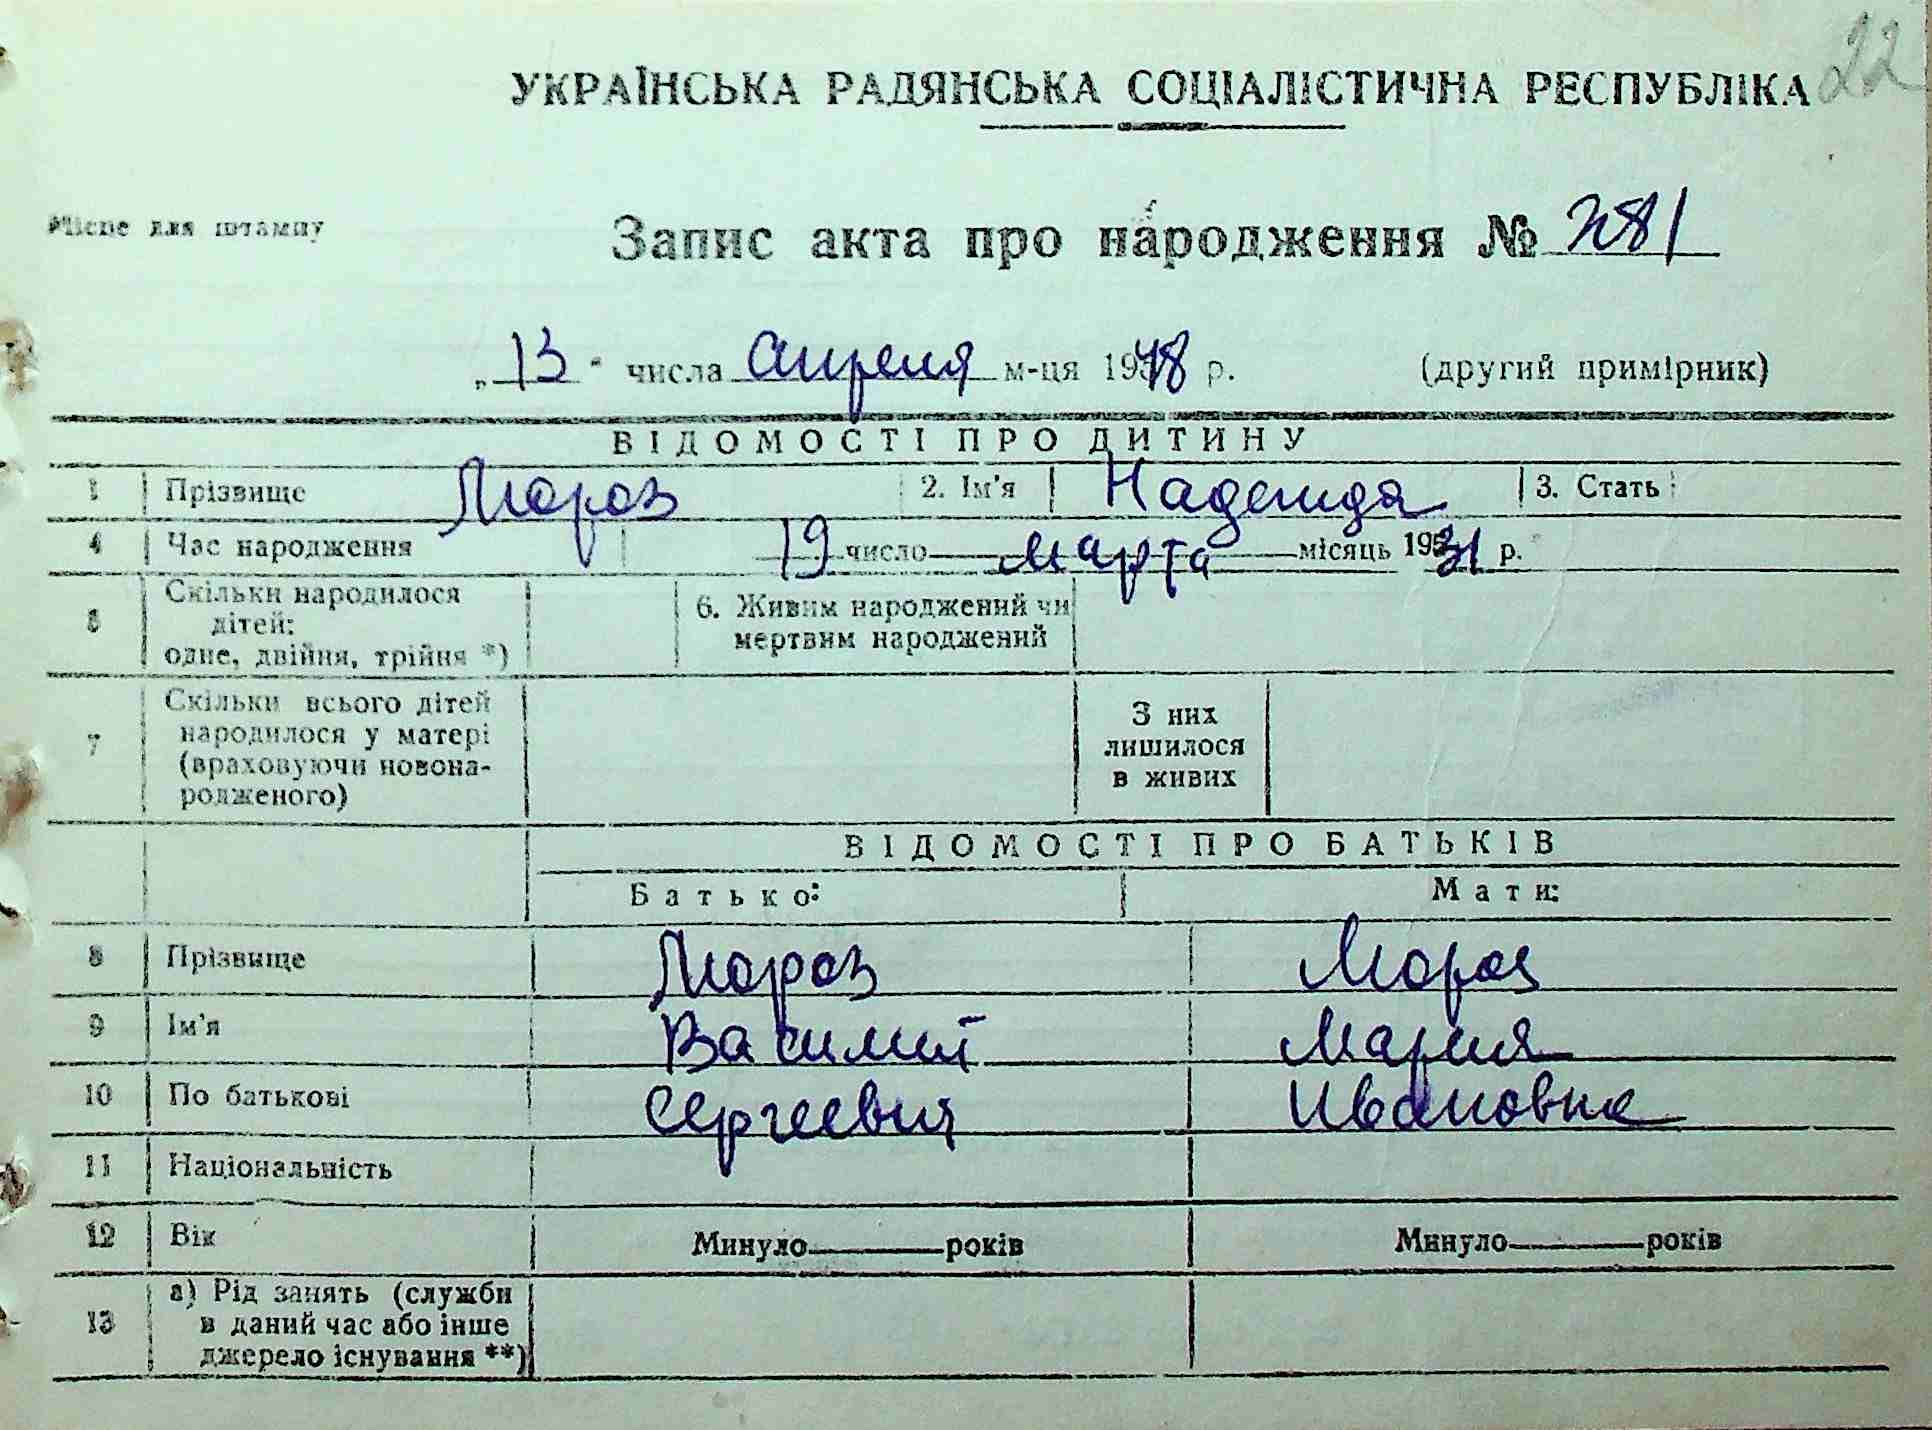 22
УКРАЇНСЬКА РАДЯНСЬКА СОЦІАЛІСТИЧНА РЕСПУБЛІКА
Місце для штампу
Запис акта про народження №
„ 13 " числа апреля м-ця 1948 р. (другий примірник)
ВІДОМОСТІ ПРО ДИТИНУ
1 Прізвище Мороз 2. Ім'я Надежда 3. Стать
4 Час народження 19 число марта місяць 1931 р.
5 Скільки народилося
дітей:
одне, двійня, трійня *)
6. Живим народжений чи
мертвим народжений
7 Скільки всього дітей
народилося у матері
(враховуючи новона-
родженого)
З них
лишилося
в живих
ВІДОМОСТІ ПРО БАТЬКІВ
Батько: Мати:
8 Прізвище Мороз Мороз
9 Ім'я Василий Мария
10 По батькові Сергеевич Ивановна
11 Національність
12 Вік Минуло років Минуло років
13 а) Рід занять (служби
в даний час або інше
джерело існування **)